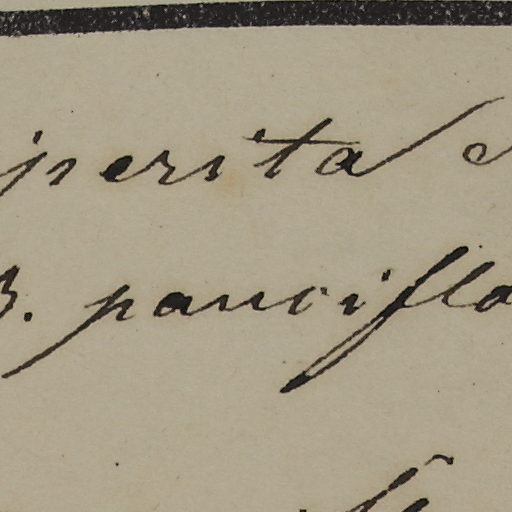 perita
B. pauciflo